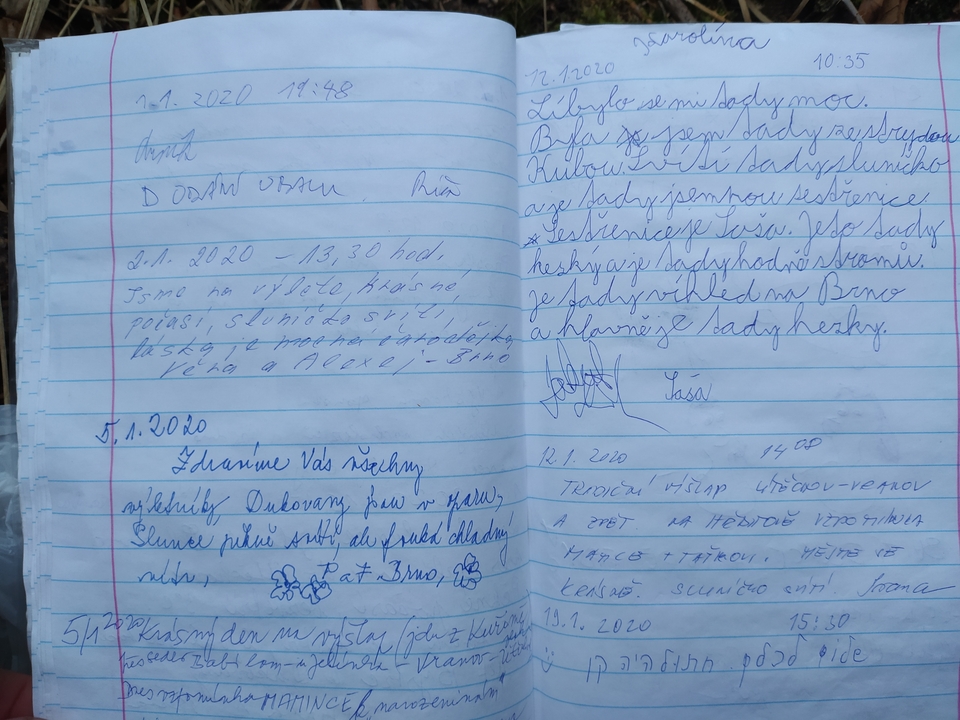 1.1. 2020 19:48
2.1. 2020 - 13,30 hod.
Jsme na výletě, krásné
počasí, sluníčko svítí,
láska je mocná čarodějka
Věra a Alexej - Brno
5.1.2020
Zdravíme Vás všechny
výletníky, Dukovany jsou v oparu,
Slunce pěkně svítí, ale fouká chladný
vítr, Pat Brno,
5/1 2020 Krásný den na výšlap (jdu z Kuřimi
přes sedlo Babí lom - Vranov -
Dnes vzpomínka MAMINCE k narozeninám"
Karolína
12.1.2020 10:35
Líbylo se mi tady moc.
Byla jsem tady ze strýdou
Kubou. Svítí tady sluníčko
a je tady jemnou sestřenice
Sestřenice je Saša. Je to tady
hezký a je tady hodně stromů.
je tady víhled na Brno
a hlavně je tady hezky.
Saša
12.1. 2020 14 00
TRADIČNÍ VÝŠLAP ÚTĚCHOV-VRANOV
A ZPĚT. NA HŘBITOVĚ VZPOMÍNKA
MAMCE + TAŤKOVI. MĚJTE SE
KRÁSNĚ. SLUNÍČKO SVÍTÍ. Ivana
19.1. 2020 15:30